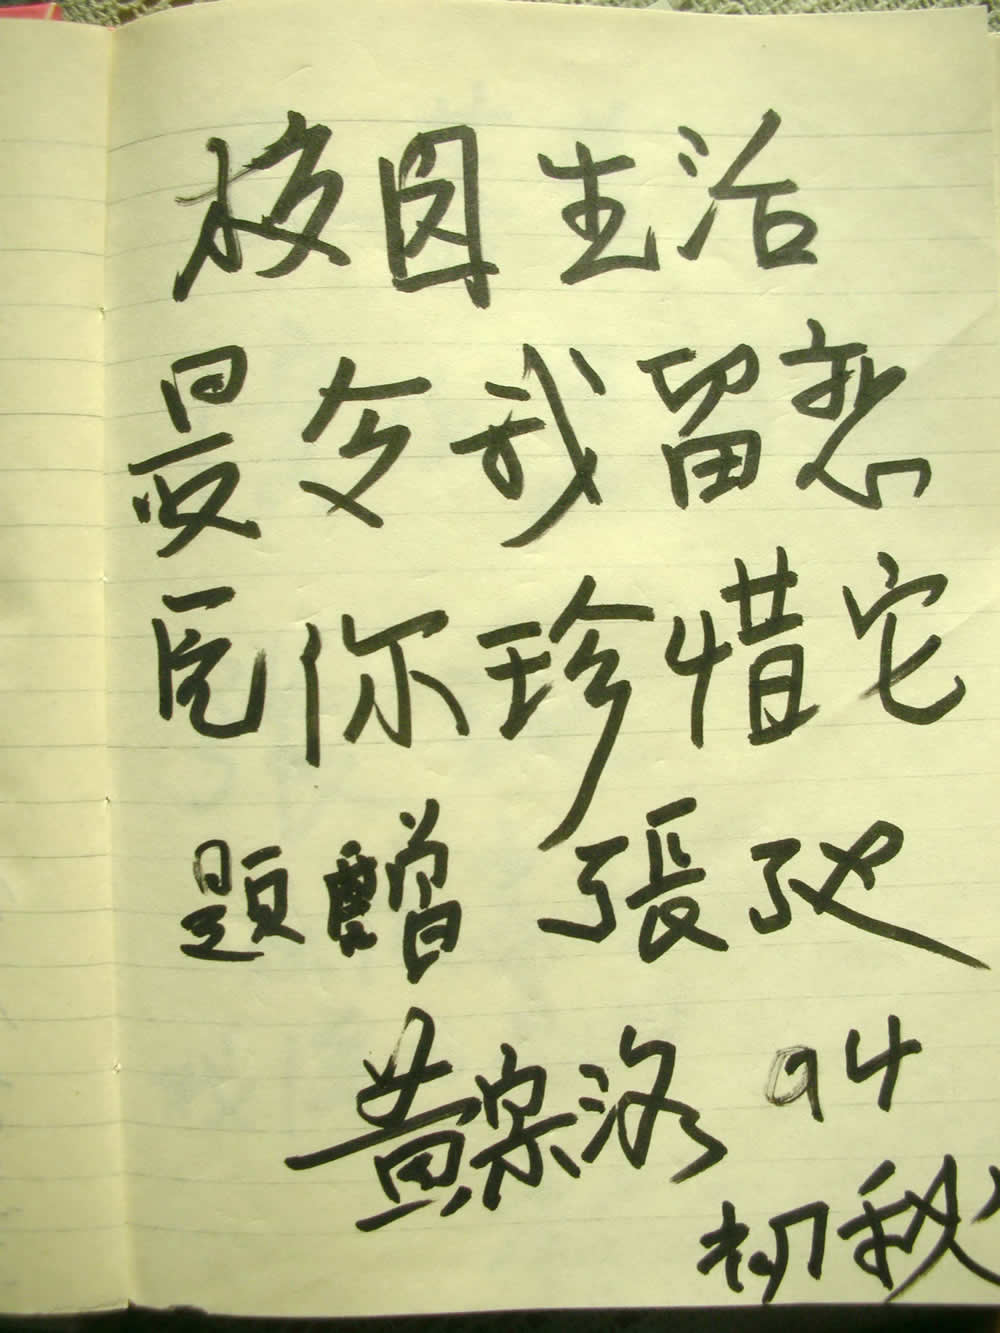 校园生活
最令我留恋
愿你珍惜它
题贈 張弛
黄宗洛 94
初秋